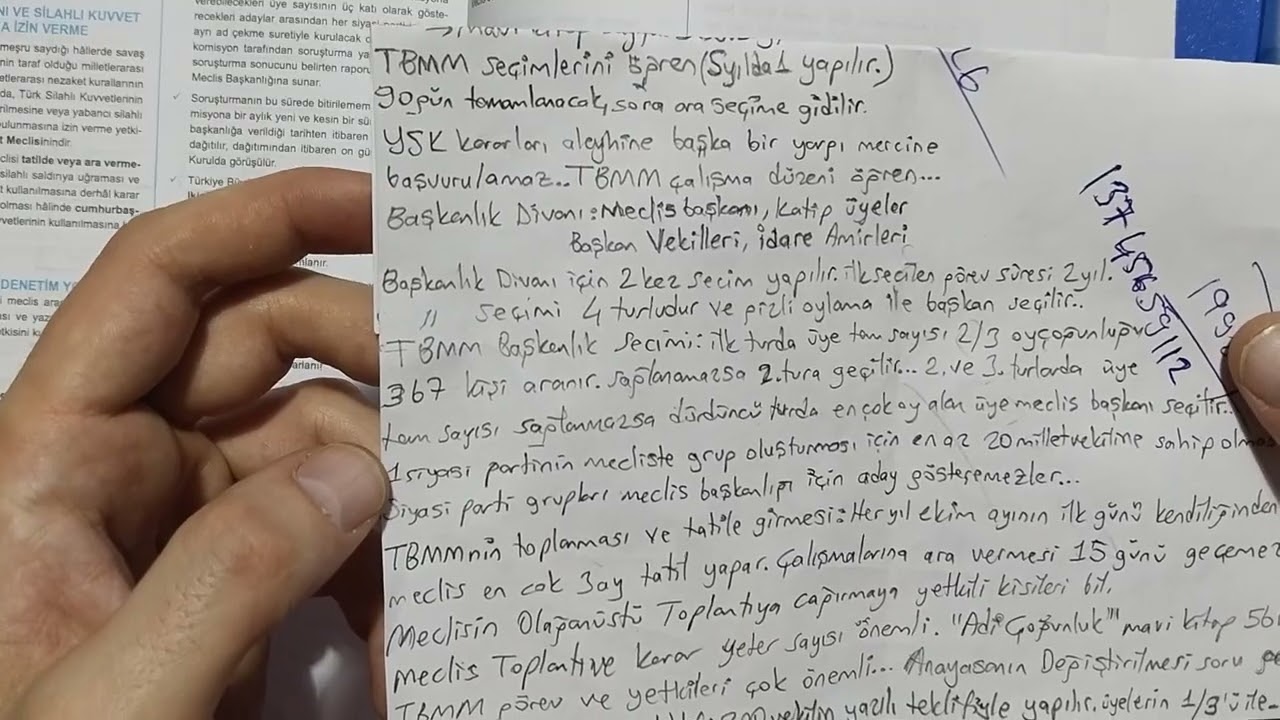 NI VE SİLAHLI KUVVET
A İZİN VERME
meşru saydığı hâllerde savaş
nin taraf olduğu milletlerarası
etlerarası nezaket kurallarının
da, Türk Silahlı Kuvvetlerinin
rilmesine veya yabancı silahlı
ulunmasına izin verme yetki-
t Meclisinindir.
clisi tatilde veya ara verme-
silahlı saldırıya uğraması ve
t kullanılmasına derhâl karar
olması hâlinde cumhurbaş-
vetlerinin kullanılmasına
DENETİM
i meclis ara
sı ve yaz
tkisini
verebilecekleri üye sayısının üç katı olarak göste-
recekleri adaylar arasından her siya
ayrı ad çekme suretiyle kurulacak
komisyon tarafından soruşturma ya
soruşturma sonucunu belirten rapor
Meclis Başkanlığına sunar.
✓ Soruşturmanın bu sürede bitirilemem
misyona bir aylık yeni ve kesin bir sü
başkanlığa verildiği tarihten itibaren
dağıtılır, dağıtımından itibaren on gü
Kurulda görüşülür.
✓ Türkiye
TBMM seçimlerini öğren (5 yılda 1 yapılır.)
90 gün tamamlanacak, sora ara seçime gidilir.
YSK kararları aleyhine başka bir yargı mercine
başvurulamaz.. TBMM çalışma düzeni öğren...
Başkanlık Divanı: Meclis başkanı, Katip üyeler
Başkan Vekilleri, idare Amirleri
Başkanlık Divanı için 2 kez secim yapılır. ilk secilen görev süresi 2 yıl.
" seçimi 4 turludur ve gizli oylama ile başkan seçilir..
TBMM Başkanlık Secimi: ilk turda üye tam sayısı 2/3 oyçoğunluğu
367 kişi aranır. sağlanamazsa 2. tura geçilir... 2. ve 3. turlarda üye
tam sayısı sağlanmazsa dördüncü turda en çok oy alan üye meclis başkanı seçilir..
1 siyasi partinin mecliste grup oluşturması için en az 20 milletvekiline sahip olma
Siyasi parti grupları meclis başkanlığı için aday gösteremezler...
TBMMnin toplanması ve tatile girmesi: Her yıl ekim ayının ilk günü kendiliğinden
meclis en cok 3 ay tatil yapar. Çalışmalarına ara vermesi 15 günü geçemez
Meclisin Olağanüstü Toplantıya çağırmaya yetkili kisileri bil.
meclis Toplantı ve Karar yeter sayısı önemli. "Adi Çoğunluk" mavi kitap 561
TBMM görev ve yetkileri çok önemli... Anayasanın Değiştirilmesi soru ge
vekilin yazılı teklifiyle yapılır. üyelerin 1/3'ü ile-